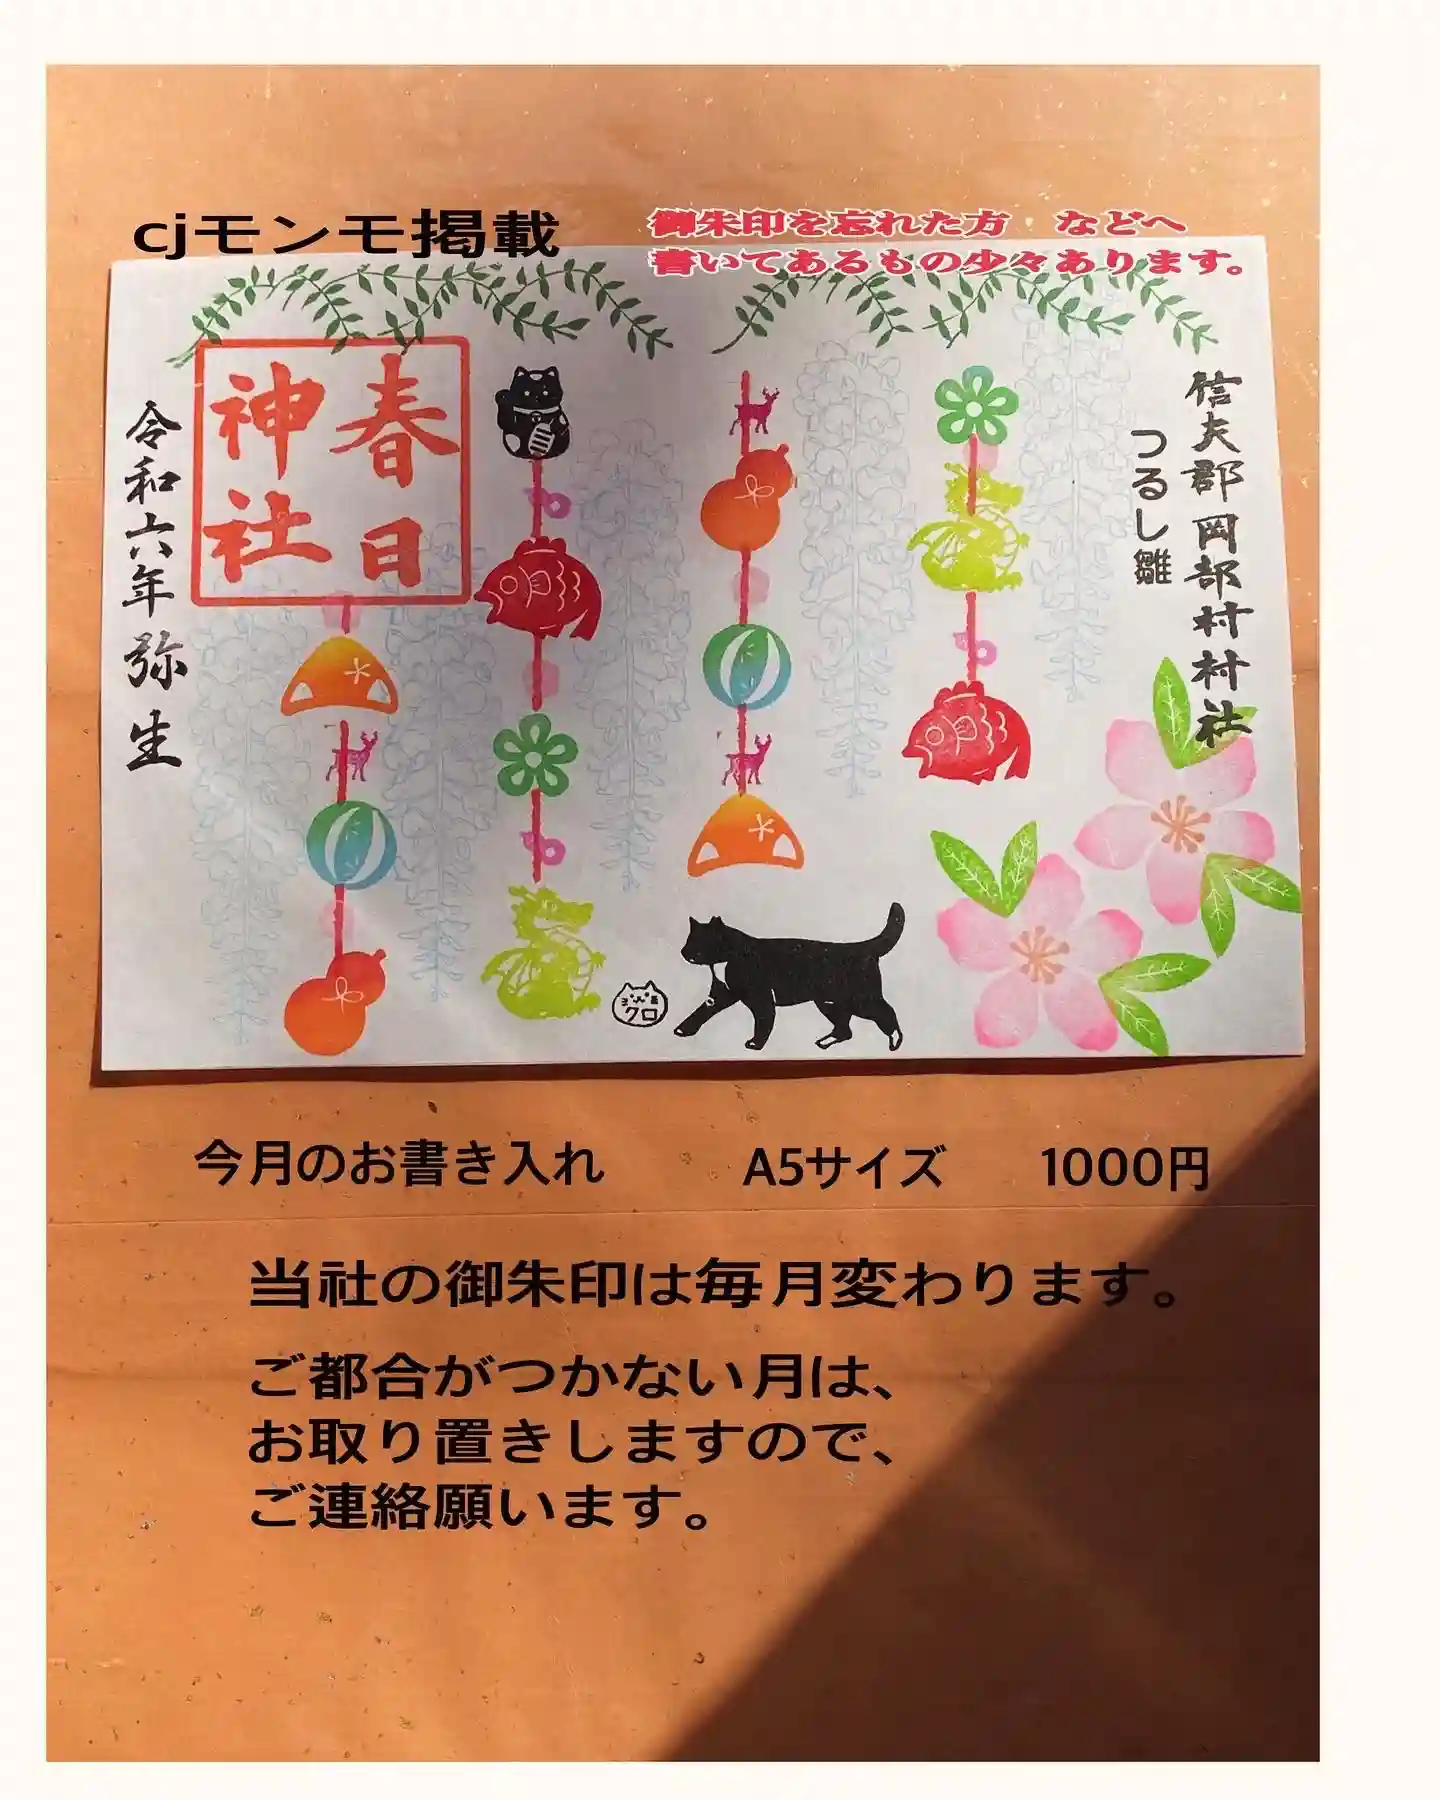 cjモンモ掲載
御朱印を忘れた方　などへ
書いてあるもの少々あります。
信夫郡岡部村村社
つるし雛
春日
神社
令和六年弥生
クロ
今月のお書き入れ　A5サイズ　1000円
当社の御朱印は毎月変わります。
ご都合がつかない月は、
お取り置きしますので、
ご連絡願います。